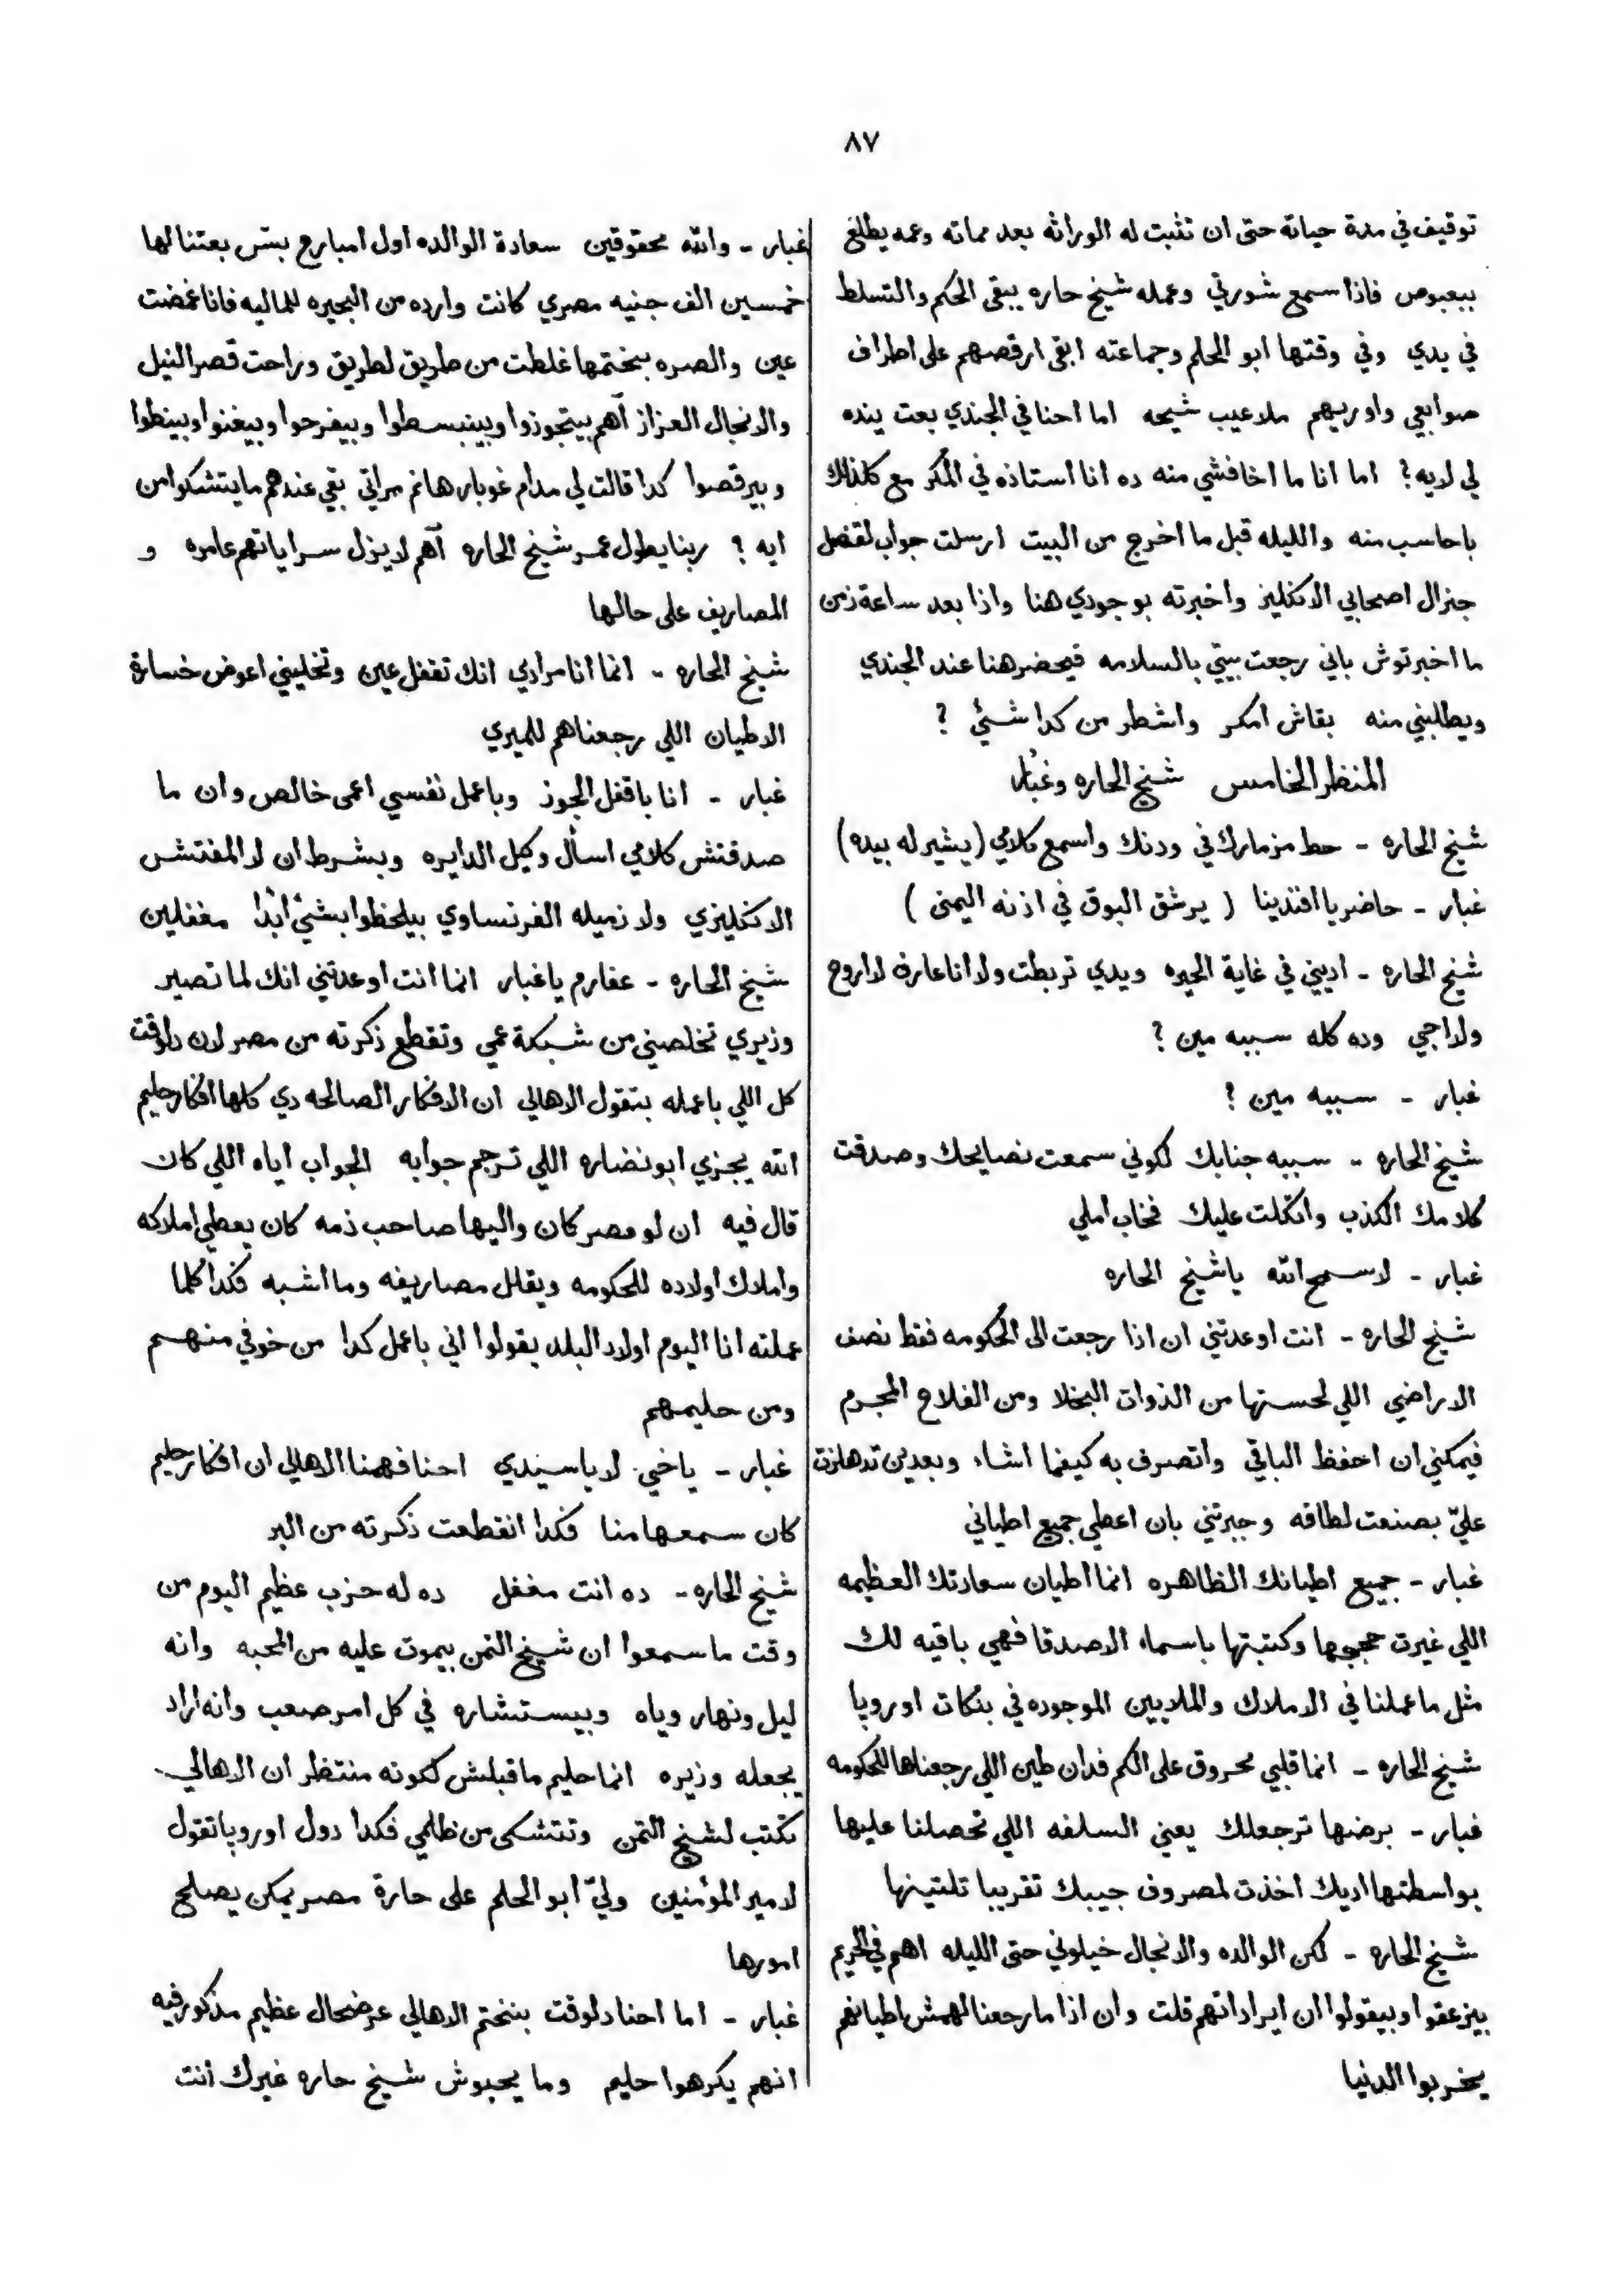 ٨٧
توقيف في مدة حياته حتى ان تثبت له الوراثه بعد مماته وعمه يطلع
ببعبوص فاذا سمع شورتي وعمله شيخ حاره يبقى الحكم والتسلط
في يدي وفي وقتها ابو الحلم وجماعته ابقى ارقصهم على اطراف
صوابعي واوريهم ملاعيب شيحه اما احنا في الجندي بعت ينده
لي لايه؟ اما انا ما اخافشي منه ده انا استاذه في المكر مع كلذلك
باحاسب منه والليله قبل ما اخرج من البيت ارسلت جواب لقنصل
جنرال اصحابي الانكليز واخبرته بوجودي هنا واذا بعد ساعة زمن
ما اخبرتوش باني رجعت بيتي بالسلامه فيحضر هنا عند الجندي
ويطلبني منه بقاش امكر واشطر من كدا شئي ؟
المنظر الخامس شيخ الحاره وغبار
شيخ الحاره - حط مزمارك في ودنك واسمع كلامي (يشير له بيده)
غبار - حاضر يا افندينا ( يرشق البوق في اذنه اليمنى )
شيخ الحاره - اديني في غاية الحيره ويدي تربطت ولا انا عارف لا اروح
ولا اجي وده كله سببه مين ؟
غبار - سببه مين ؟
شيخ الحاره - سببه جنابك لكوني سمعت نصايحك وصدقت
كلامك الكذب واتكلت عليك فخاب املي
غبار - لا سمح الله يا شيخ الحاره
شيخ الحاره - انت اوعدتني ان اذا رجعت الى الحكومه فقط نصف
الاراضي اللي لحستها من الذوات البخلا ومن الفلاح المجرم
فيمكني ان احفظ الباقي واتصرف به كيفما اشاء وبعدين تدهلزت
عليّ بصنعت لطافه وجبرتني بان اعطي جميع اطياني
غبار - جميع اطيانك الظاهره انما اطيان سعادتك العظيمه
اللي غيرت حججها وكتبتها باسماء الاصدقا فهي باقيه لك
مثل ما عملنا في الاملاك والملايين الموجوده في بنكات اوروپا
شيخ الحاره - انما قلبي محروق على الكم فدان طين اللي رجعناها للحكومه
غبار - برضها ترجعلك يعني السلفه اللي تحصلنا عليها
بواسطتها اديك اخذت لمصروف جيبك تقريبا تلتينها
شيخ الحاره - لكن الوالده والانجال خيلوني حتى الليله اهم في الحريم
بيزعقوا وبيقولوا ان ايراداتهم قلت وان اذا ما رجعنا لهمش اطيانهم
يخربوا الدنيا
غبار - والله محقوقين سعادة الوالده اول امبارح بسّ بعتنا لها
خمسين الف جنيه مصري كانت وارده من البحيره للماليه فانا غمضت
عين والصره بختمها غلطت من طريق لطريق وراحت قصر النيل
والانجال العزاز آهم بيتجوزوا وبينبسطوا وبيفرحوا وبيغنوا وبينطوا
وبيرقصوا كدا قالت لي مدام غوبار هانم مراتي بقي عندهم ما يتشكوا من
ايه ؟ ربنا يطول عمر شيخ الحاره آهم لا يزل سراياتهم عامره و
المصاريف على حالها
شيخ الحاره - انما انا مرادي انك تقفل عين وتخليني اعوض خسارة
الاطيان اللي رجعناهم للميري
غبار - انا باقفل الجوز وباعمل نفسي اعمى خالص وان ما
صدقتش كلامي اسأل وكيل الدايره وبشرط ان لا المفتش
الانكليزي ولا زميله الفرنساوي بيلحظوا بشئ ابدًا مغفلين
شيخ الحاره - عفارم يا غبار انما انت اوعدتني انك لما تصير
وزيري تخلصني من شبكة عمي وتقطع ذكرته من مصر لان دلوقت
كل اللي باعمله بتقول الاهالي ان الافكار الصالحه دي كلها افكار حليم
الله يجزي ابو نضاره اللي ترجم جوابه الجواب اياه اللي كان
قال فيه ان لو مصر كان واليها صاحب ذمه كان يعطي املاكه
واملاك اولاده للحكومه ويقلل مصاريفه وما اشبه فكدا كلما
عملته انا اليوم اولاد البلد يقولوا اني باعمل كدا من خوفي منهم
ومن حليمهم
غبار - يا خي لا يا سيدي احنا فهمنا الاهالي ان افكار حليم
كان سمعها منا فكدا انقطعت ذكرته من البر
شيخ الحاره - ده انت مغفل ده له حزب عظيم اليوم من
وقت ما سمعوا ان شيخ التمن بيموت عليه من المحبه وانه
ليل ونهار وياه وبيستشاره في كل امر صعب وانه اراد
يجعله وزيره انما حليم ما قبلش لكونه منتظر ان الاهالي
تكتب لشيخ التمن وتتشكى من ظلمي فكدا دول اوروپا تقول
لامير المؤمنين وليّ ابو الحلم على حارة مصر يمكن يصلح
امورها
غبار - اما احنا دلوقت بنختم الاهالي عرضحال عظيم مذكور فيه
انهم يكرهوا حليم وما يحبوش شيخ حاره غيرك انت